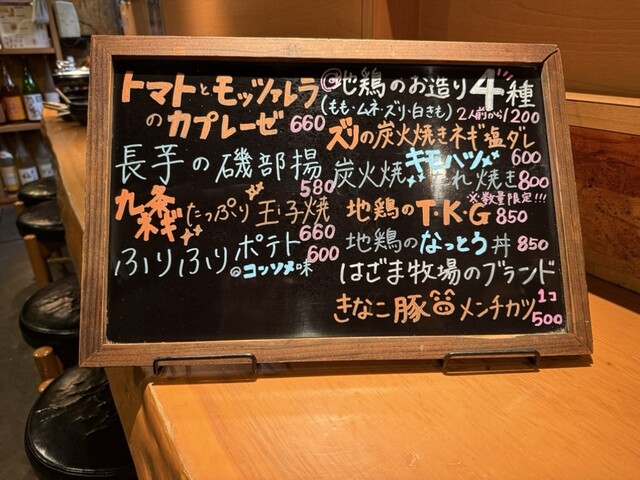 トマトとモッツァレラ
のカプレーゼ 660
長芋の磯部揚
580
九条ネギたっぷり玉子焼
660
ふりふりポテト
@コンソメ味 600
@地鶏のお造り4種
(もも・ムネ・ズリ・白きも) 2人前から1200
ズリの炭火焼きネギ塩ダレ
600
炭火焼 キモハツ たれ焼き 800
※数量限定!!!
地鶏のT・K・G 850
地鶏のなっとう丼 850
はざま牧場のブランド
きなこ豚メンチカツ 1コ
500